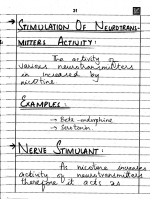 21
→ STIMULATION OF NEUROTRANS-
MITTERS ACTIVITY:
The activity of
various neurotransmitters
is increased by
nicotine.
EXAMPLES:
→ Beta-endorphine
→ Serotonin.
→ NERVE STIMULANT:
As nicotine increases
activity of neurotransmitters
therefore it acts as